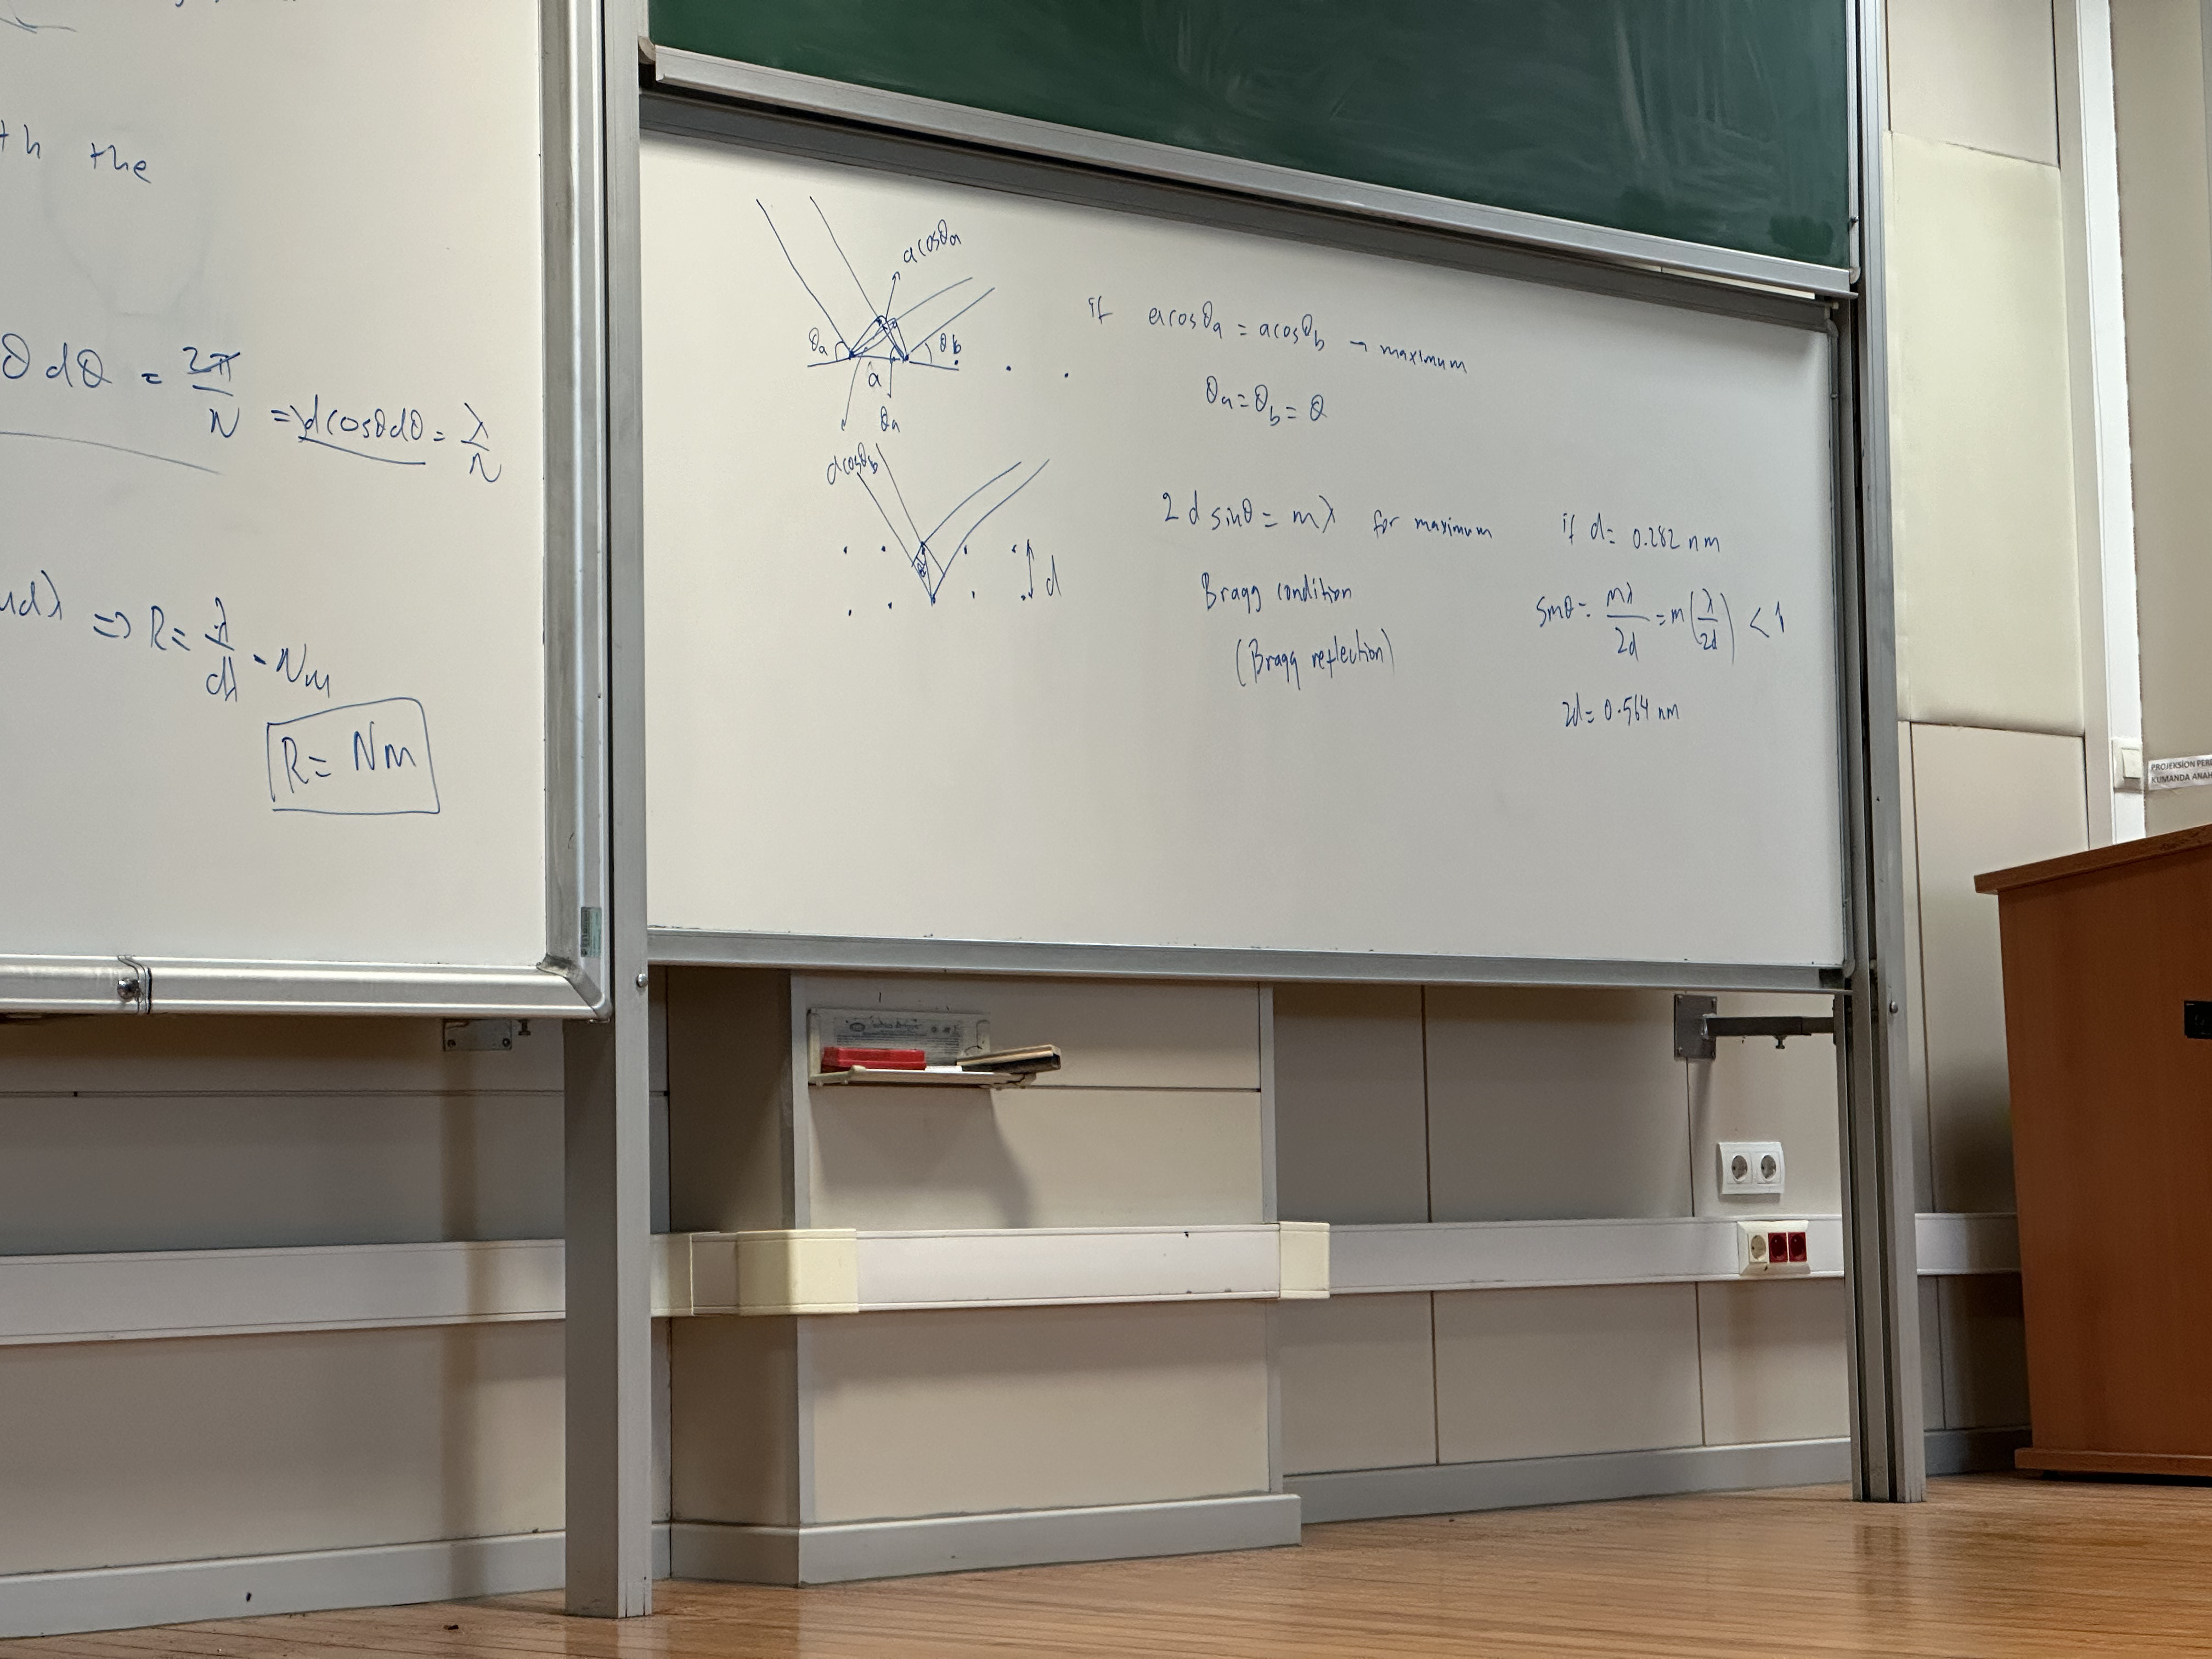 th the
θ dθ = 2π/N = dcosθdθ = λ/N
mdλ ⇒ R = λ/dλ = Nm
R = Nm
acosθa
θa
θb
a
θa
dcosθb
d
if acosθa = acosθb → maximum
θa = θb = θ
2d sinθ = mλ for maximum
Bragg condition
(Bragg reflection)
if d = 0.282 nm
sinθ = mλ/2d = m(λ/2d) < 1
2d = 0.564 nm
PROJEKSİON PER
KUMANDA ANAH